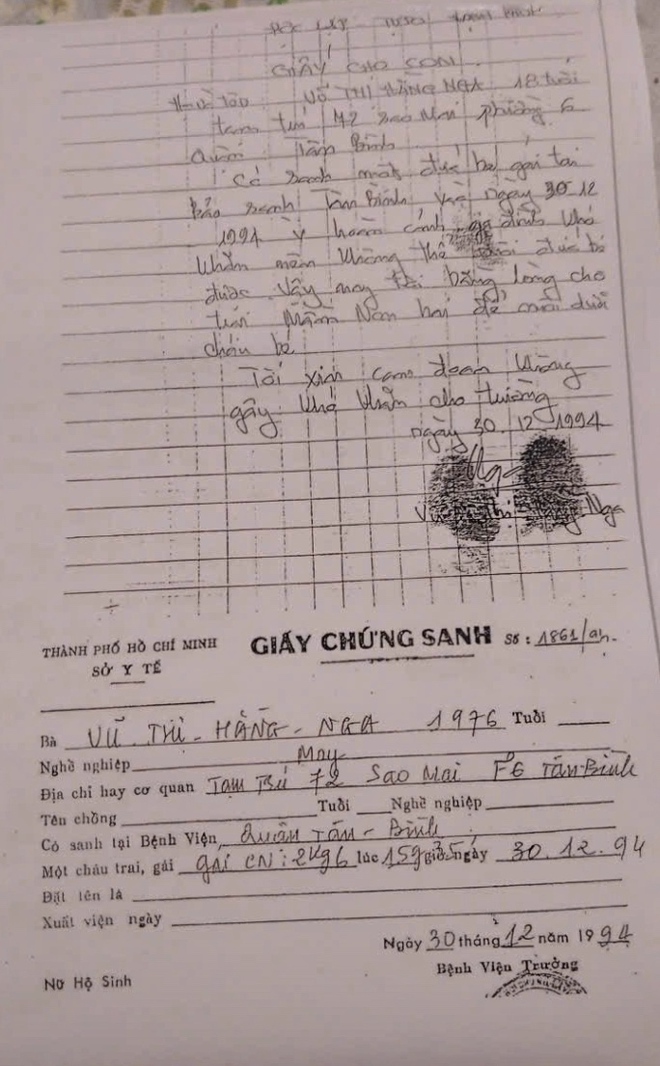 ĐỘC LẬP TỰ DO HẠNH PHÚC
GIẤY CHO CON
VŨ THỊ HẰNG NGA 18 tuổi
tạm trú 72 Sao Mai phường 6
Quận Tân Bình
Có sanh một đứa bé gái tại
bảo sanh Tân Bình ngày 30-12
1994 Vì hoàn cảnh gia đình khó
khăn nên không thể nuôi đứa bé
được. Vậy nay tôi bằng lòng cho
Mầm Non hai để nuôi dưỡi
cháu bé
Tôi xin cam đoan không
gây khó khăn cho trường
ngày 30.12.1994
Nga
Vũ Thị Nga
THÀNH PHỐ HỒ CHÍ MINH
SỞ Y TẾ
GIẤY CHỨNG SANH Số: 1861/
Bà VŨ THỊ - HẰNG - NGA 1976 Tuổi
Nghề nghiệp May
Địa chỉ hay cơ quan Tạm Trú 72 Sao Mai F6 Tân-Bình
Tên chồng Tuổi Nghề nghiệp
Có sanh tại Bệnh Viện Quận Tân - Bình
Một cháu trai, gái gái CN: 2kg6 lúc 15g35 giờ ngày 30.12.94
Đặt tên là
Xuất viện ngày
Ngày 30 tháng 12 năm 1994
Bệnh Viện Trưởng
Nữ Hộ Sinh